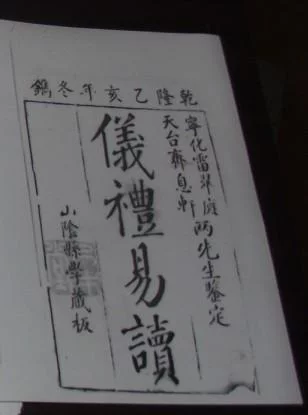 乾隆乙亥年冬鐫
寧化雷翠庭兩先生鑒定
天台齊息軒
儀禮易讀
山陰縣學藏板